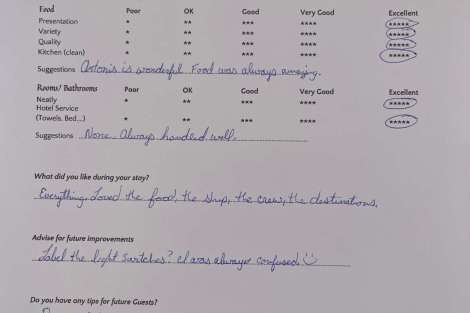 Food Poor OK Good Very Good Excellent
Presentation * ** *** **** *****
Variety * ** *** **** *****
Quality * ** *** **** *****
Kitchen (clean) * ** *** **** *****
Suggestions Antonis is wonderful. Food was always amazing.
Rooms/ Bathrooms Poor OK Good Very Good Excellent
Neatly * ** *** **** *****
Hotel Service
(Towels, Bed...) * ** *** **** *****
Suggestions None. Always handled well.
What did you like during your stay?
Everything. Loved the food, the ship, the crew, the destinations.
Advise for future improvements
Label the light switches? I was always confused ☺
Do you have any tips for future Guests?